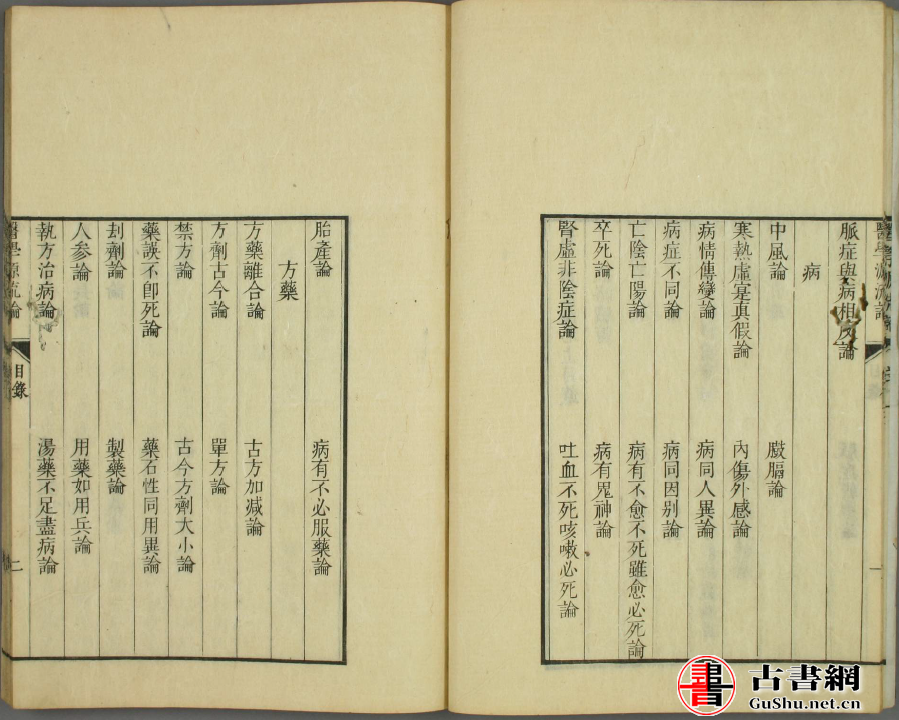 醫學源流論
脈症與病相反論
病
中風論 臌膈論
寒熱虛寔真假論 內傷外感論
病情傳變論 病同人異論
病症不同論 病同因别論
亡陰亡陽論 病有不愈不死雖愈必死論
卒死論 病有鬼神論
腎虛非陰症論 吐血不死咳嗽必死論
胎產論 病有不必服藥論
方藥
方藥離合論 古方加减論
方劑古今論 單方論
禁方論 古今方劑大小論
藥誤不卽死論 藥石性同用異論
刦劑論 製藥論
人參論 用藥如用兵論
執方治病論 湯藥不足盡病論
醫學源流論 目錄 二
古書網
GuShu.net.cn